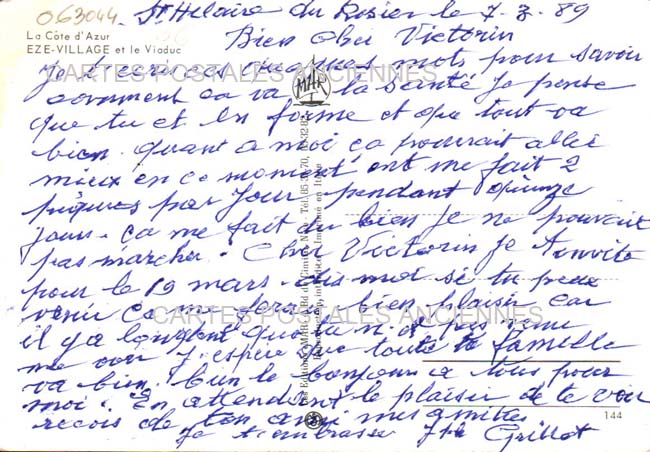 063044
St Hilaire du Rosier le 7-3-89
La Côte d'Azur
EZE-VILLAGE et le Viaduc
Bien cher Victorin
Je t'ecris ces quelques mots pour savoir
comment ca va la santé Je pense
que tu et en forme et que tout va
bien. quant a moi ça pourrait aller
mieux en ce moment ont me fait 2
piqures par jour pendant quinze
jours. ca me fait du bien je ne pouvais
pas marcher. Cher Victorin je t'invite
pour le 19 mars. dis moi si tu peux
venir ca me ferais bien plaisir car
il y a longtent que tu n. et pas venu
me voir J'espère que toute ta famille
va bien. bien le bonjour a tous pour
moi. En attendent le plaisir de te voir
recois de ton ami mes amities
Je t'embrasse Grillot
144
MAR
CARTES POSTALES ANCIENNES
CARTES POSTALES ANCIENNES